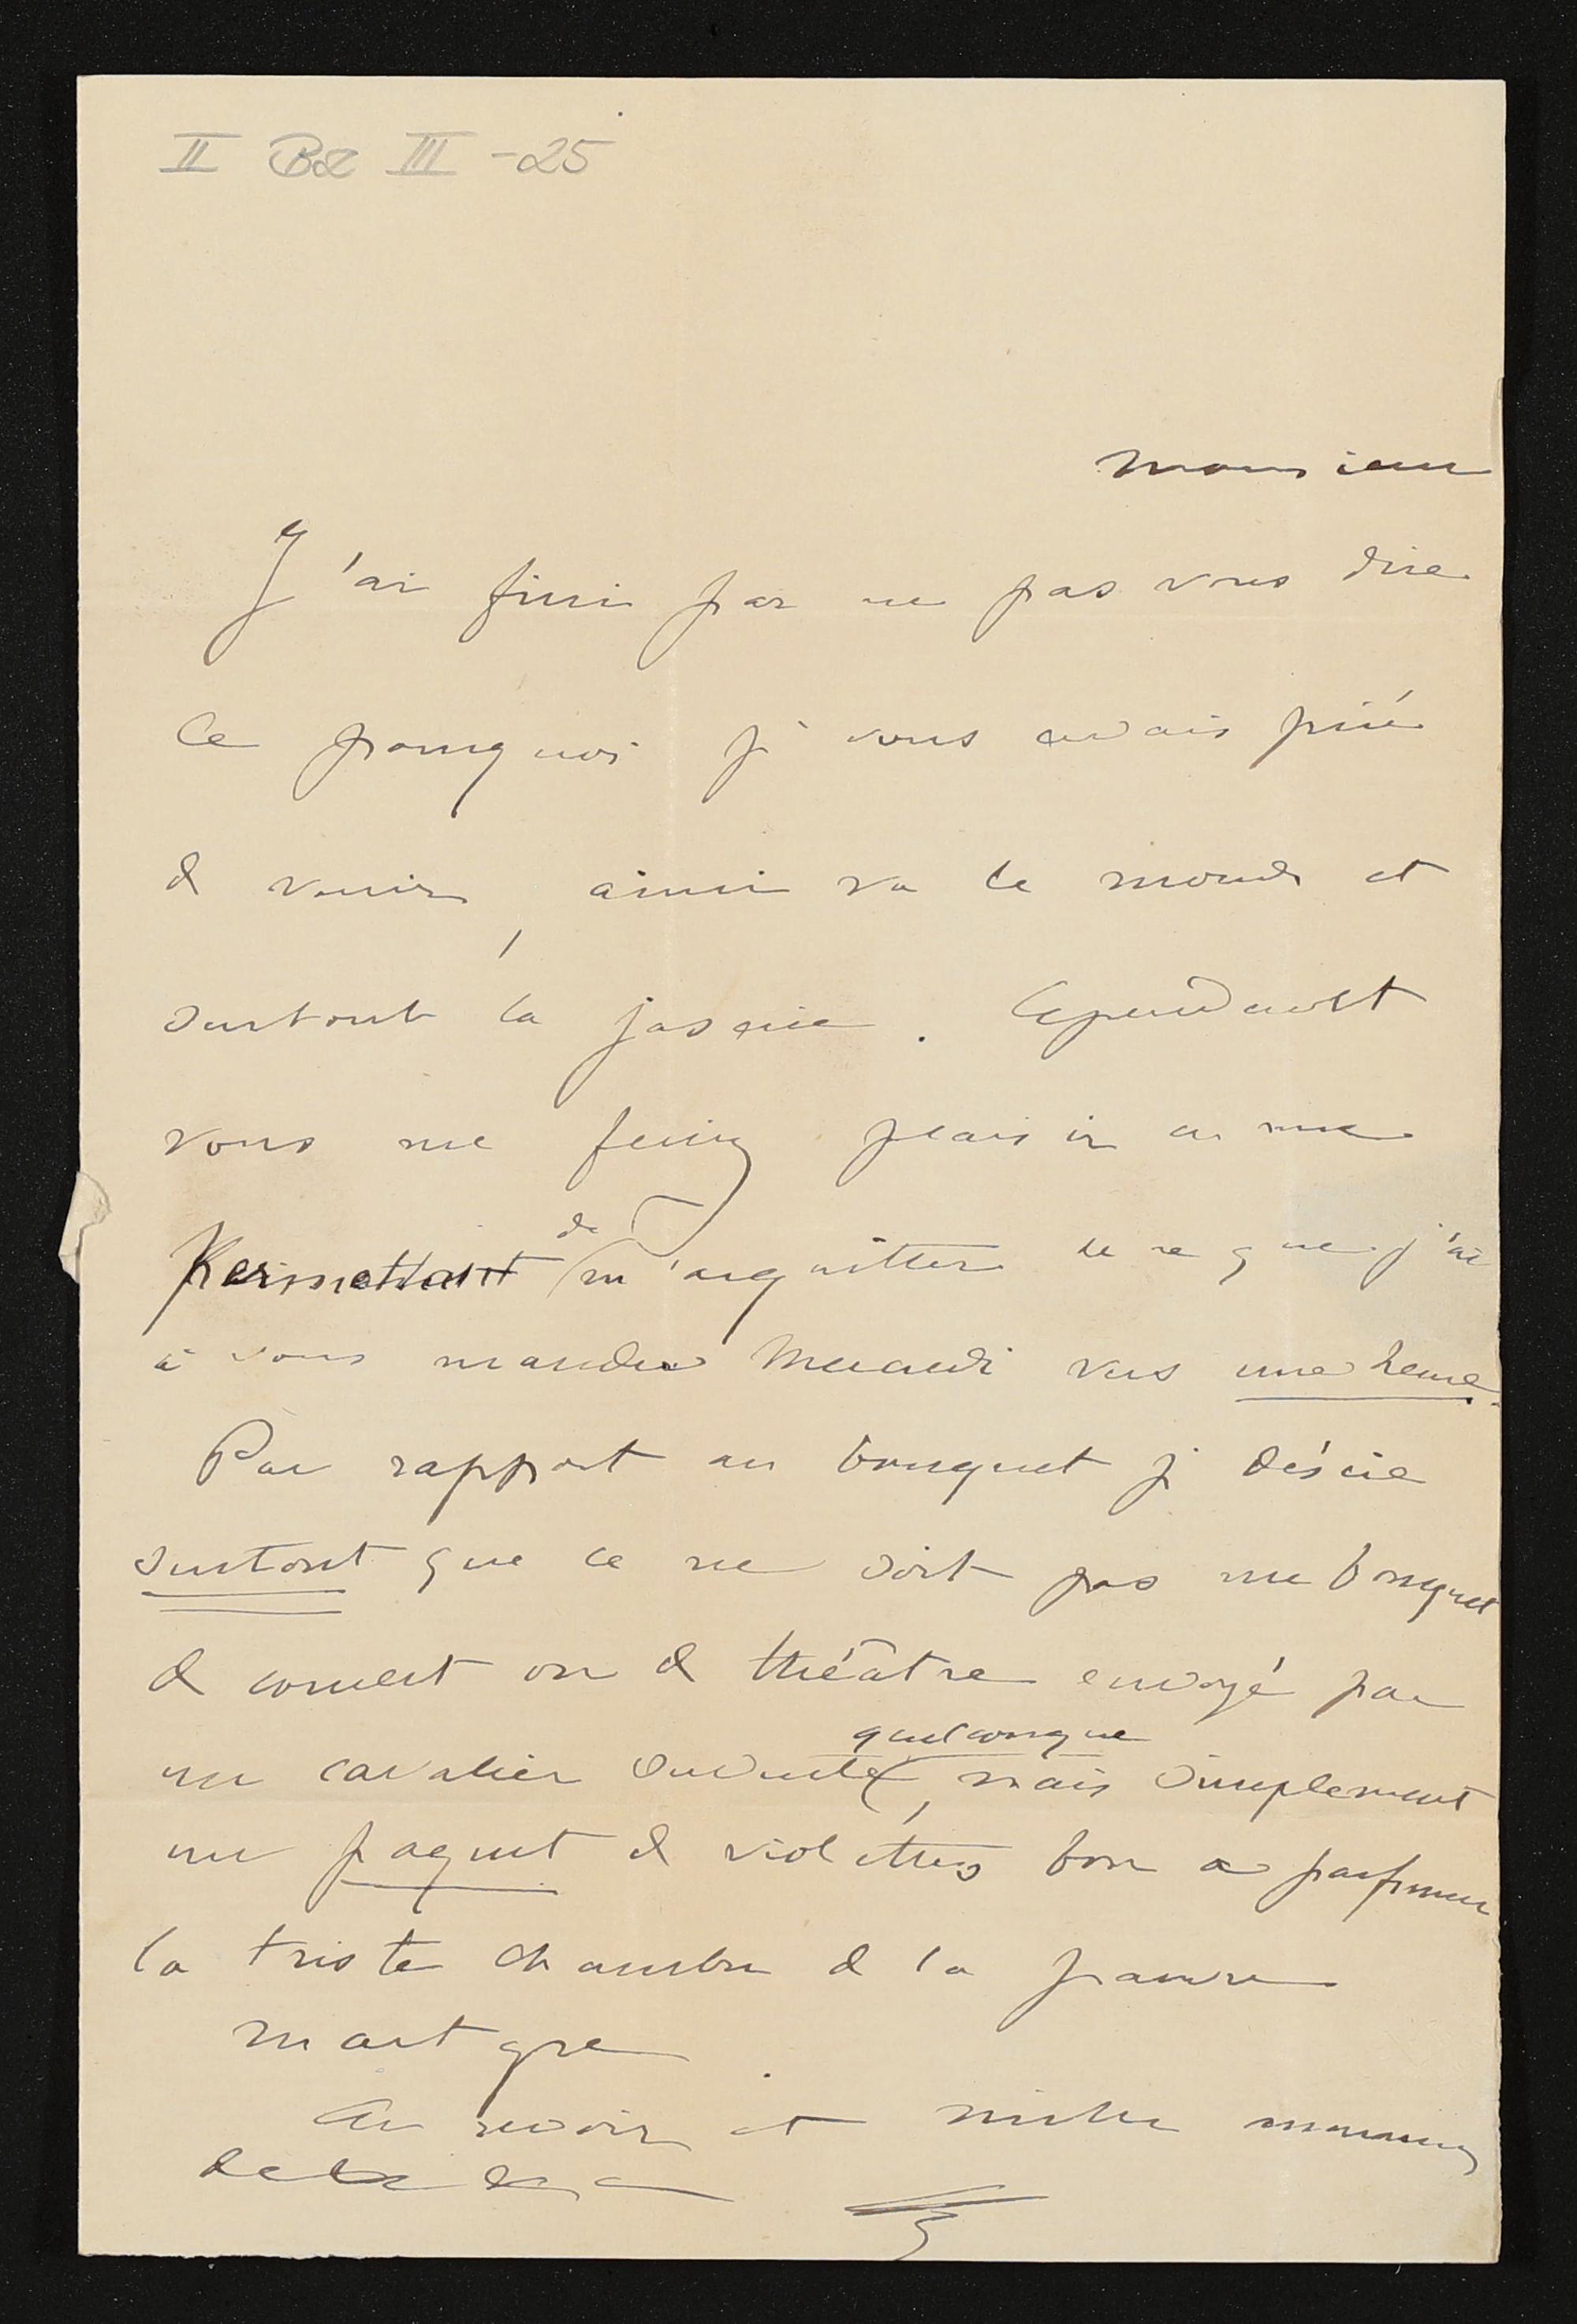 II BL III -25
Monsieur
J'ai fini par ne pas vous dire
le pourquoi je vous avais prié
de venir, ainsi va le monde et
surtout la . Cependant
vous me feriez plaisir en me
permettant de m'acquitter de ce que j'ai
à vous mander Mercredi vers une heure.
Par rapport au bouquet je désire
surtout que ce ne soit pas un bouquet
de concert ou de théâtre envoyé par
un cavalier servente quelconque, mais simplement
un paquet de violettes bon a parfumer
la triste chambre de la pauvre
martyre.
Au revoir et mille